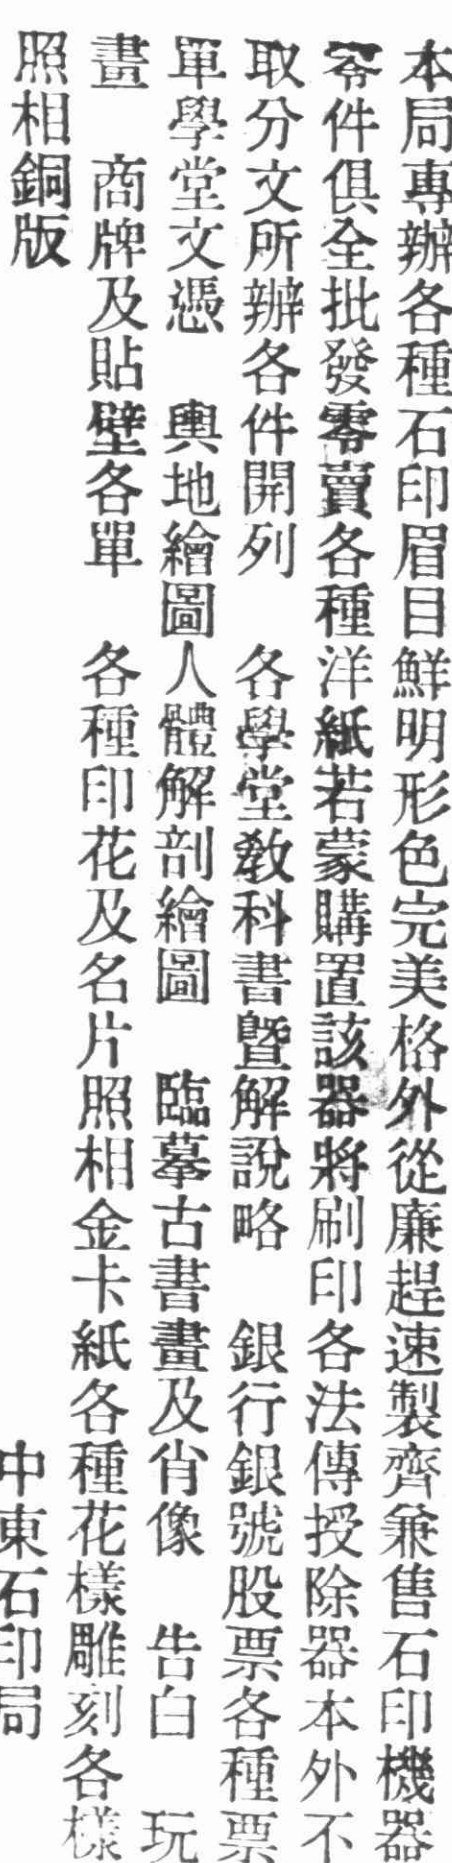 本局專辦各種石印眉目鮮明形色完美格外從廉趕速製齊兼售石印機器
零件俱全批發零賣各種洋紙若蒙購置該器將刷印各法傳授除器本外不
取分文所辦各件開列　各學堂教科書暨解說略　銀行銀號股票各種票
單學堂文憑　輿地繪圖人體解剖繪圖　臨摹古書畫及肖像　告白　玩
畫　商牌及貼壁各單　各種印花及名片照相金卡紙各種花樣雕刻各樣
照相銅版
中東石印局